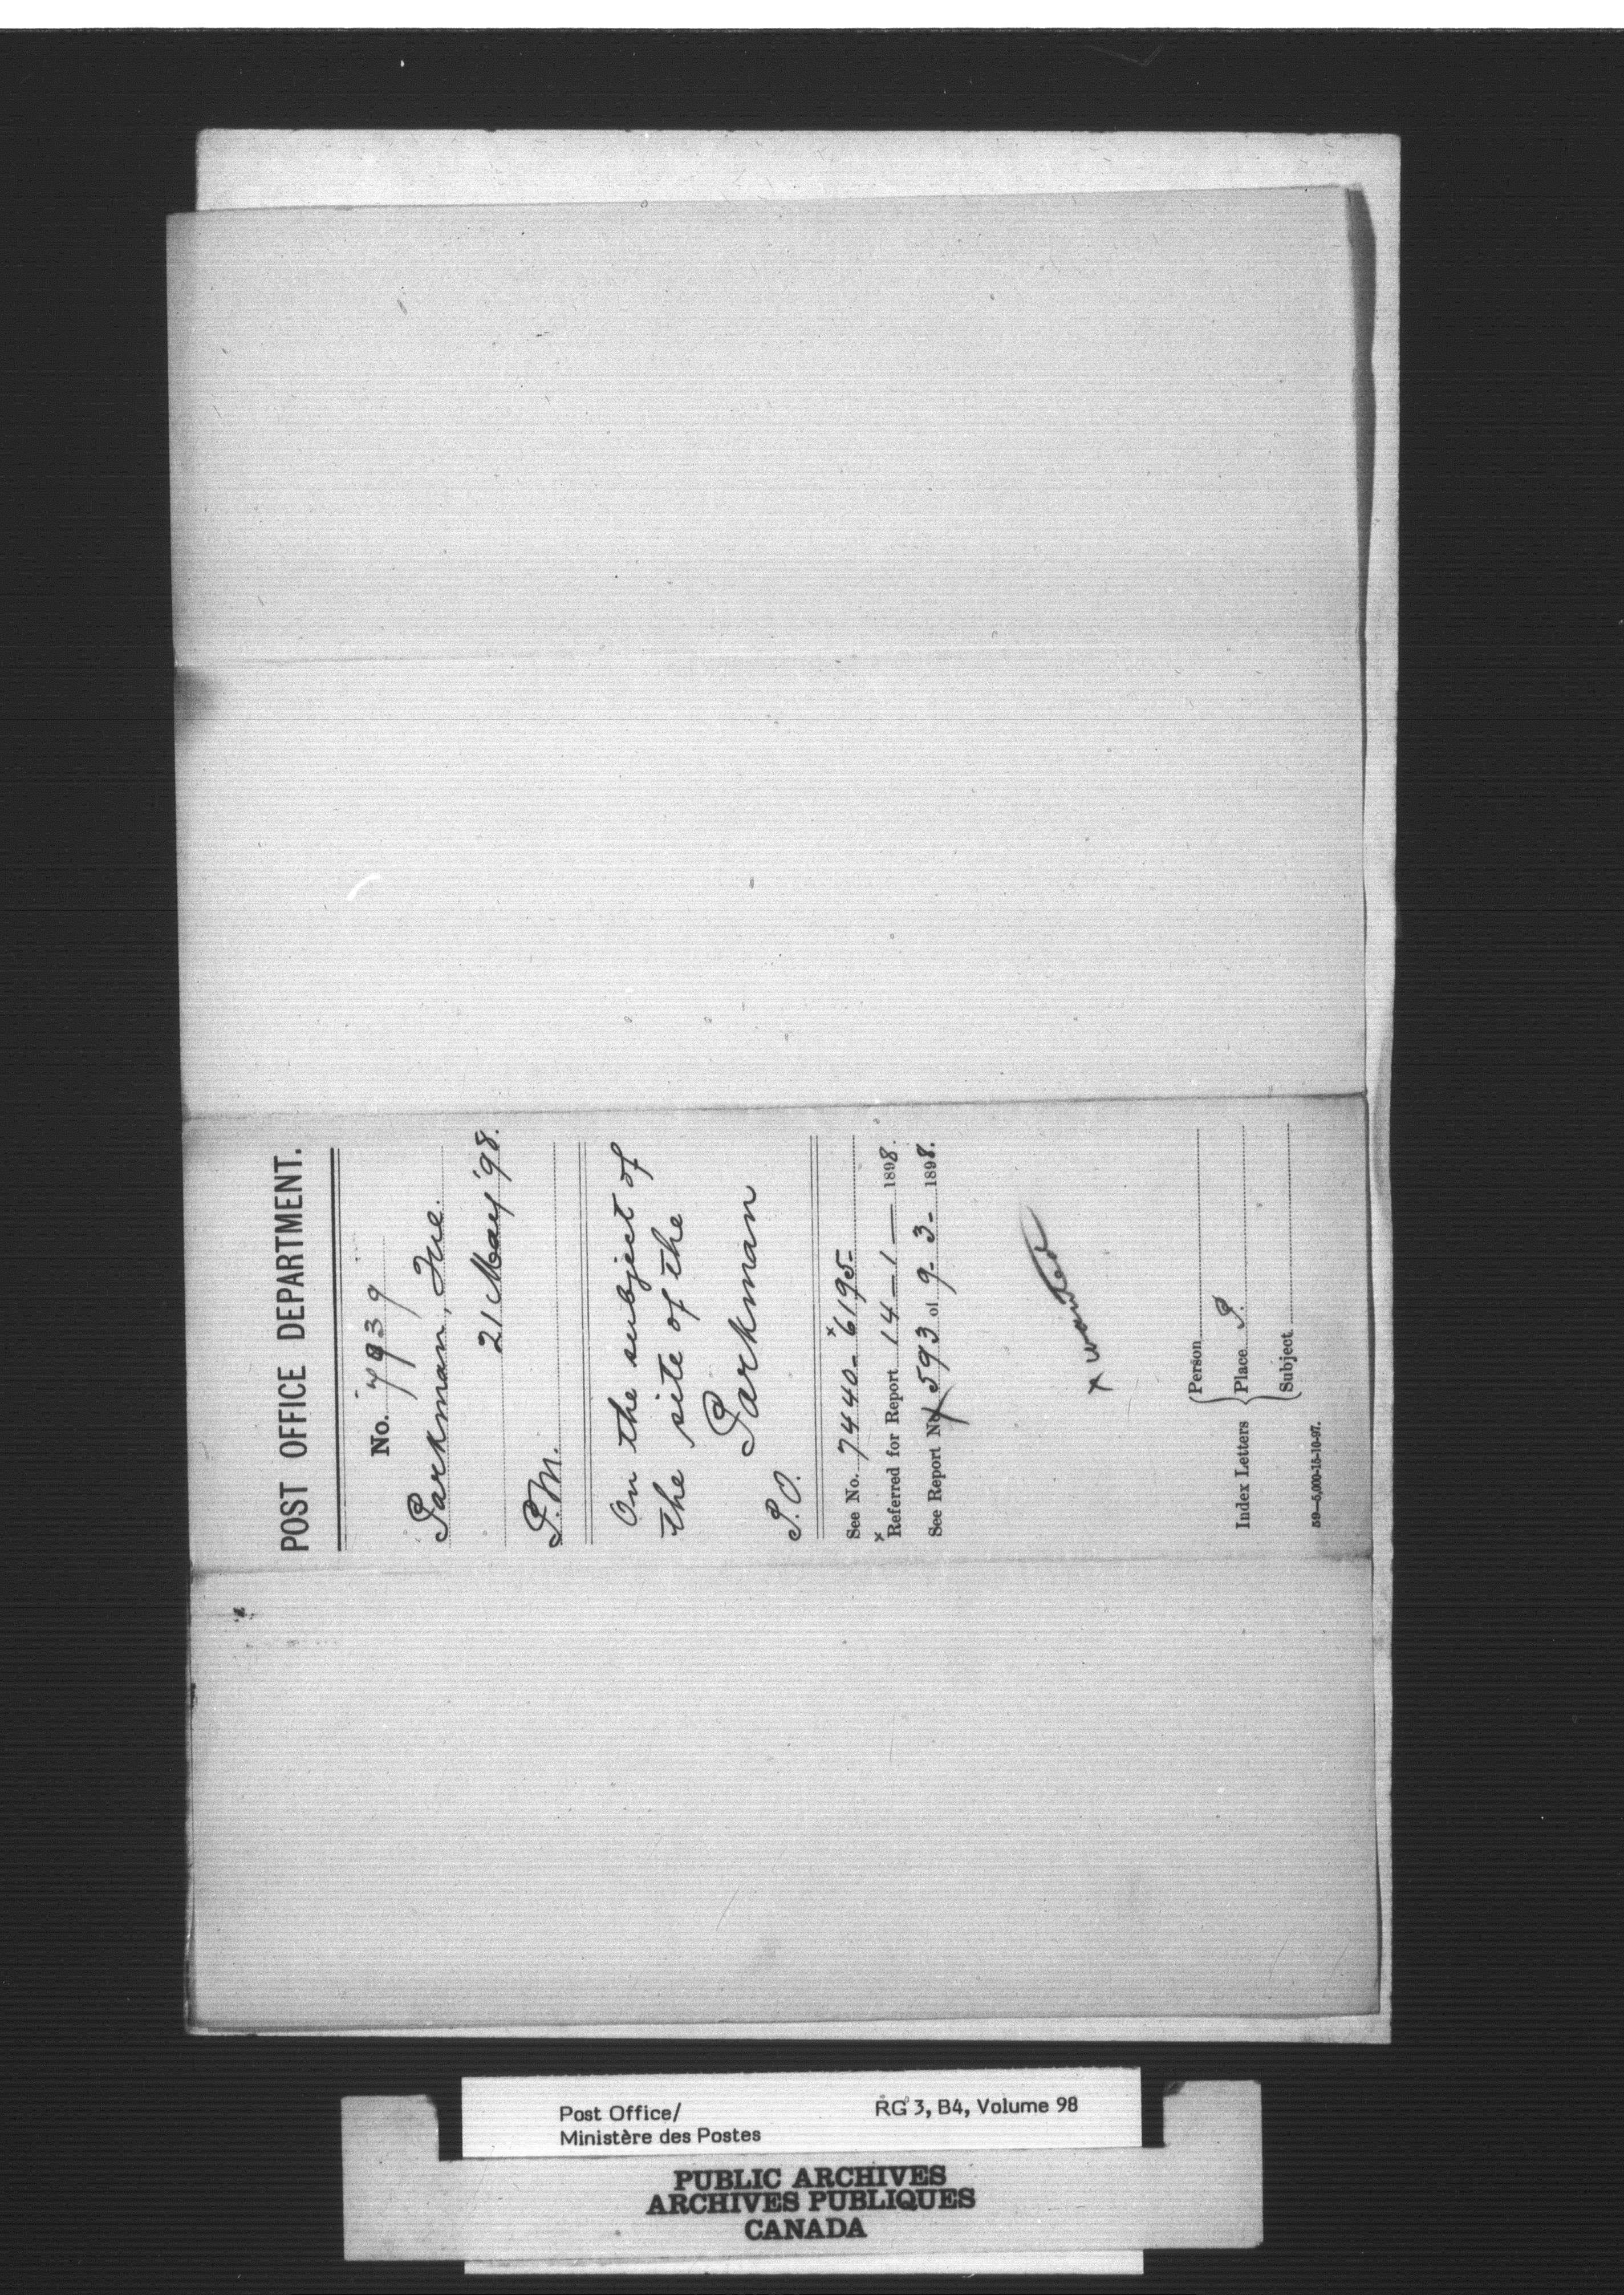 POST OFFICE DEPARTMENT.
No. 7939
Parkman, Que.
21 May '98.
P.M.
On the subject of
the site of the
Parkman
P.O.
See No. 7440 - x6195 -
x Referred for Report 14 - 1 - 1898.
See Report No. x 593 of 9 - 3 - 1898.
x wanted
Index Letters { Person
Place P.
Subject
59—5,000-15-10-97.
Post Office/
Ministère des Postes
RG 3, B4, Volume 98
PUBLIC ARCHIVES
ARCHIVES PUBLIQUES
CANADA